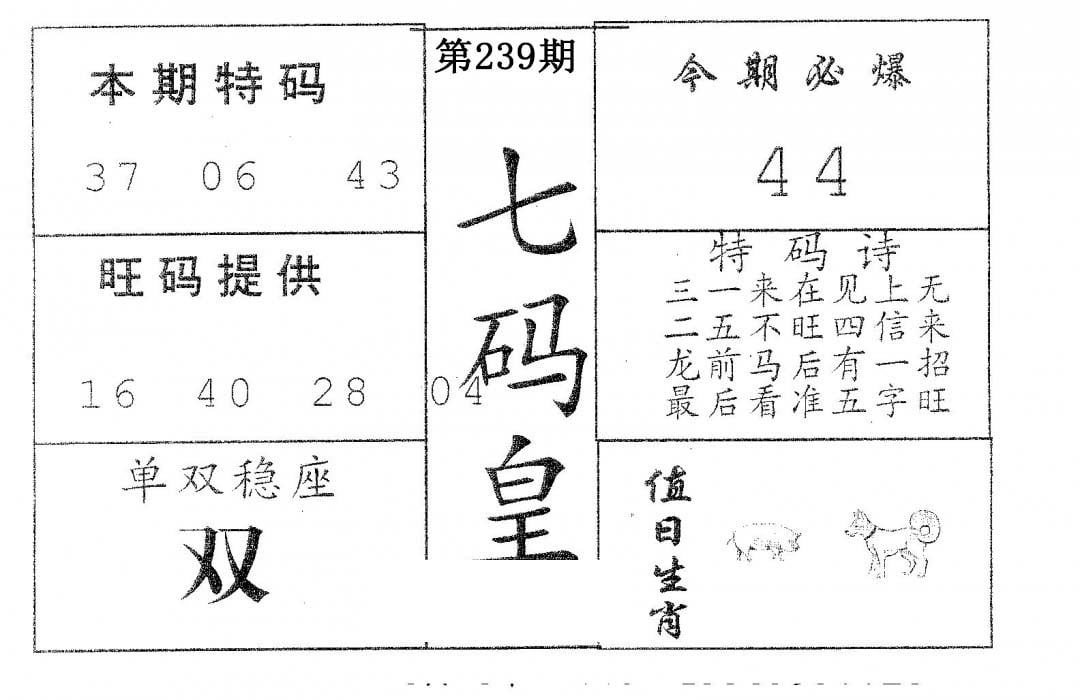 本期特码
37 06 43
旺码提供
16 40 28 04
单双稳座
双
第239期
七码皇
今期必爆
44
特码诗
三一来在见上无
二五不旺四信来
龙前马后有一招
最后看准五字旺
值日生肖